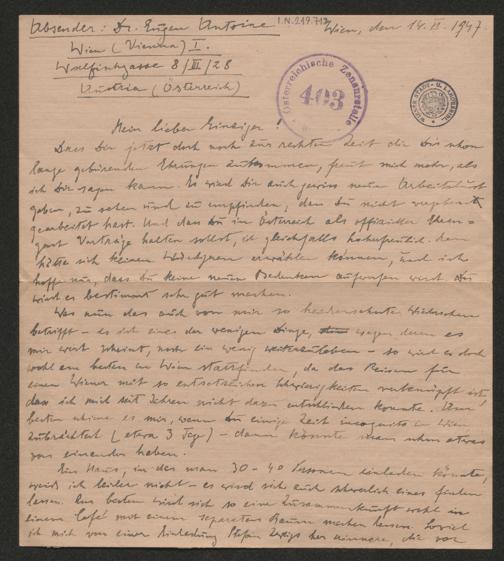 Absender: Dr. Eugen Antoine
I.N. 219.717
Wien, den 14. II. 1947.
Wien (Vienna) I.
Wolfengasse 3/III/28
Austria (Österreich)
Österreichische Zensurstelle
403
Mein lieber Einziger!
Dass Dir jetzt doch noch zur rechten Zeit die Dir schon
lange gebührenden Ehrungen zukommen, freut mich mehr, als
ich Dir sagen kann. Es wird Dir auch gewiss neuen Arbeitslust
geben, zu sehen und zu empfinden, dass Du nicht
gearbeitet hast. Und dass Du in Österreich als offizieller Ehren-
gast Vorträge halten sollst, ist gleichfalls hocherfreulich. Man
hätte sich keinen Würdigeren erwählen können, und ich
hoffe nur, dass Du keine neuen Bedenken aufwerfen wirst. Du
wirst es bestimmt sehr gut machen.
Was nun das auch von mir so heissersehnte Wiedersehen
betrifft – es ist eines der wenigen Dinge, wegen denen es
mir wert scheint, noch ein wenig weiterzuleben – so wird es doch
wohl am besten in Wien stattfinden, da das Reisen für
einen Wiener mit so entsetzlichen Schwierigkeiten verknüpft ist,
dass ich mich seit Jahren nicht dazu entschliessen konnte. Am
besten schiene es mir, wenn Du einige Zeit incognito in Wien
zubrächtest (etwa 3 Tage) – dann könnte man schon etwas
von einander haben.
Ein Haus, in das man 30 - 40 Personen einladen könnte,
weiss ich leider nicht – es wird sich auch schwerlich eines finden
lassen. Am besten wird sich so eine Zusammenkunft wohl in
einem Café mit einem separaten Raum machen lassen. Soviel
ich mich von einer Einladung Stefan Zweigs her erinnere, die vor